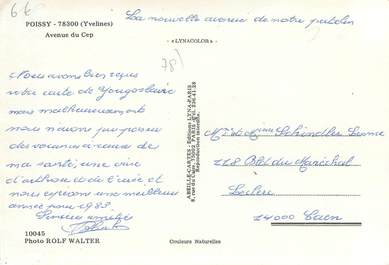 6€
POISSY - 78300 (Yvelines)
Avenue du Cep
La nouvelle avenue de notre
« LYNACOLOR »
78)
Nous avons bien reçu
votre carte de Yougoslavie
mais malheureusement
nous n'avons pu
des vacances à cause de
ma santé, une crise
d'arthrose
nous espérons une meilleure
année pour 1983.
Sincères amitiés
ABEILLE-CARTES - Editions LYNA-PARIS
Reproduction interdite.
Mr et Mme Schindler
118 Bld du Maréchal
Leclerc
14000 Caen
10045
Photo ROLF WALTER
Couleurs Naturelles